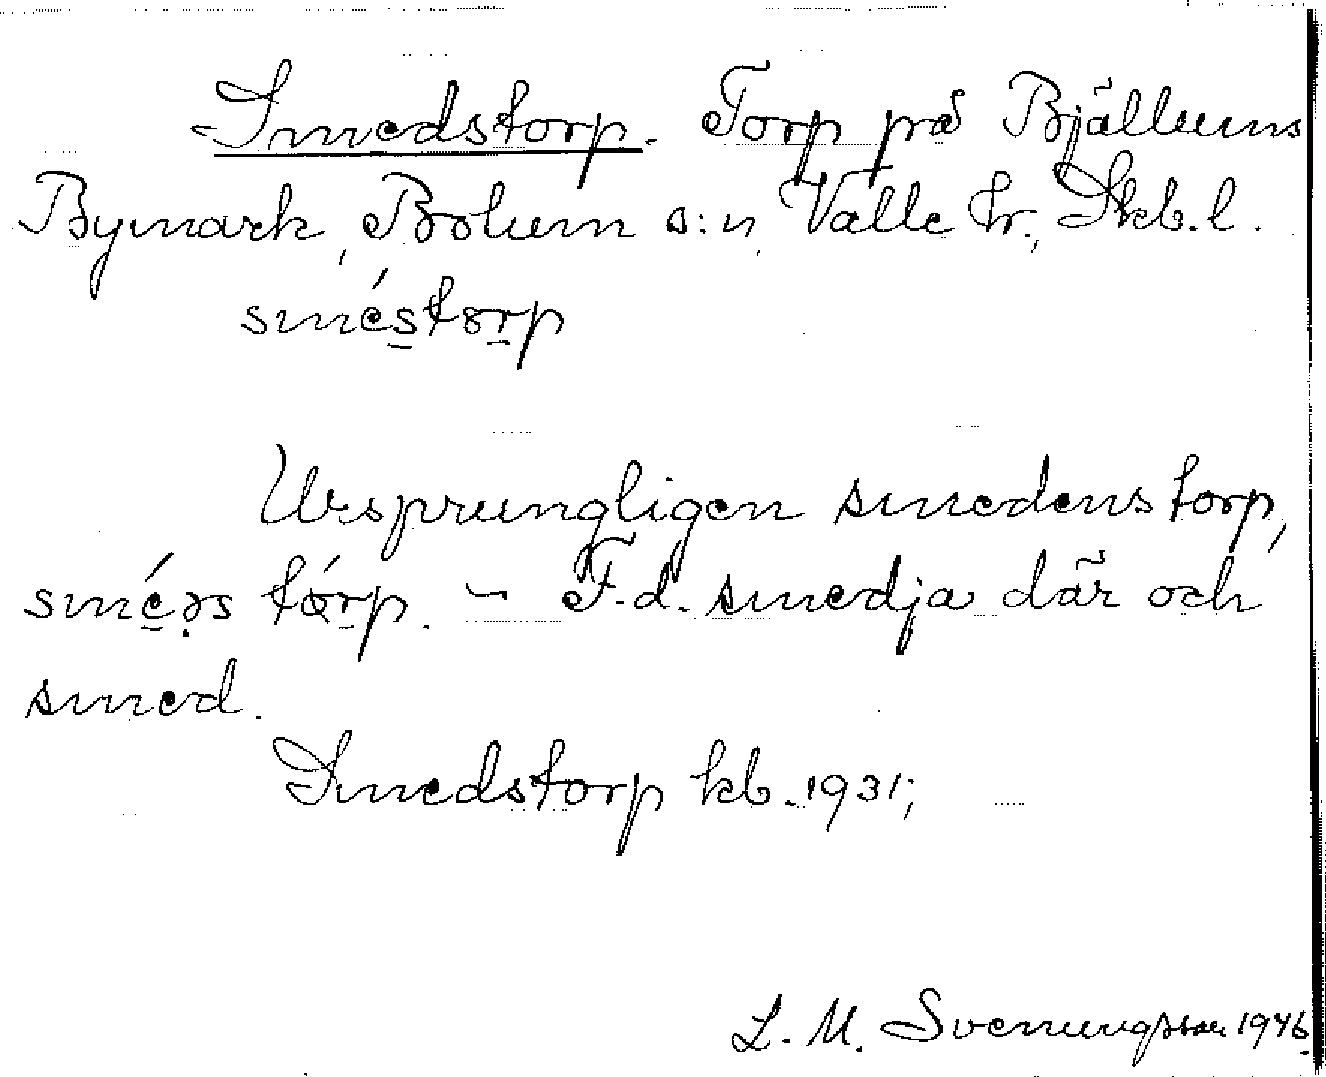 Smedstorp. Torp på Bjällums
Bymark, Bolum s:n, Valle hr., Skb.l.
sméstorp
Ursprungligen smedens torp,
sméəs tórp. - F.d. smedja där och
smed.
Smedstorp kb. 1931;
L. M. Svenungsson 1946.